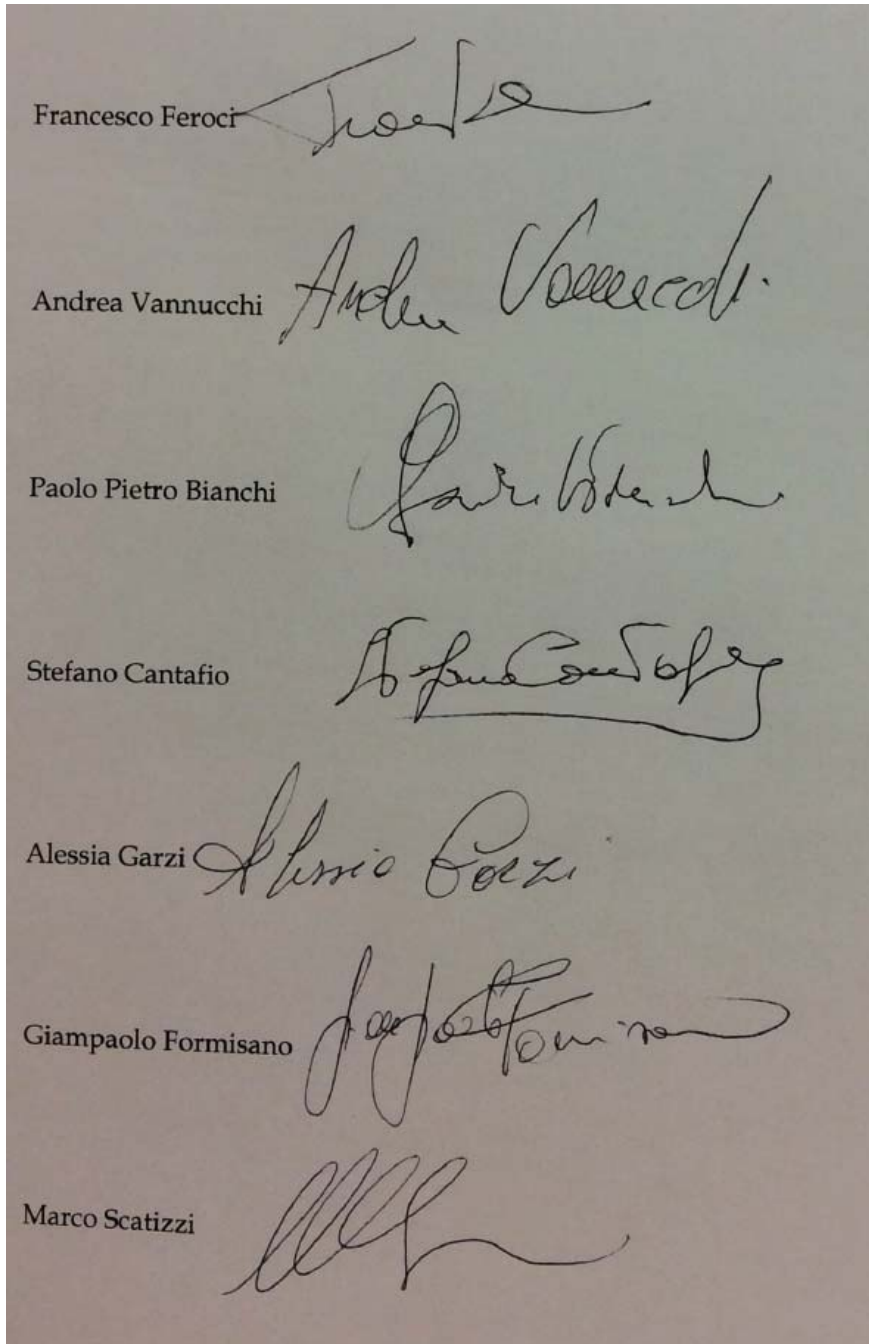 Francesco Feroci
Andrea Vannucchi Andrea Vannucchi
Paolo Pietro Bianchi
Stefano Cantafio Stefano Cantafio
Alessia Garzi Alessia Garzi
Giampaolo Formisano Giampaolo Formisano
Marco Scatizzi